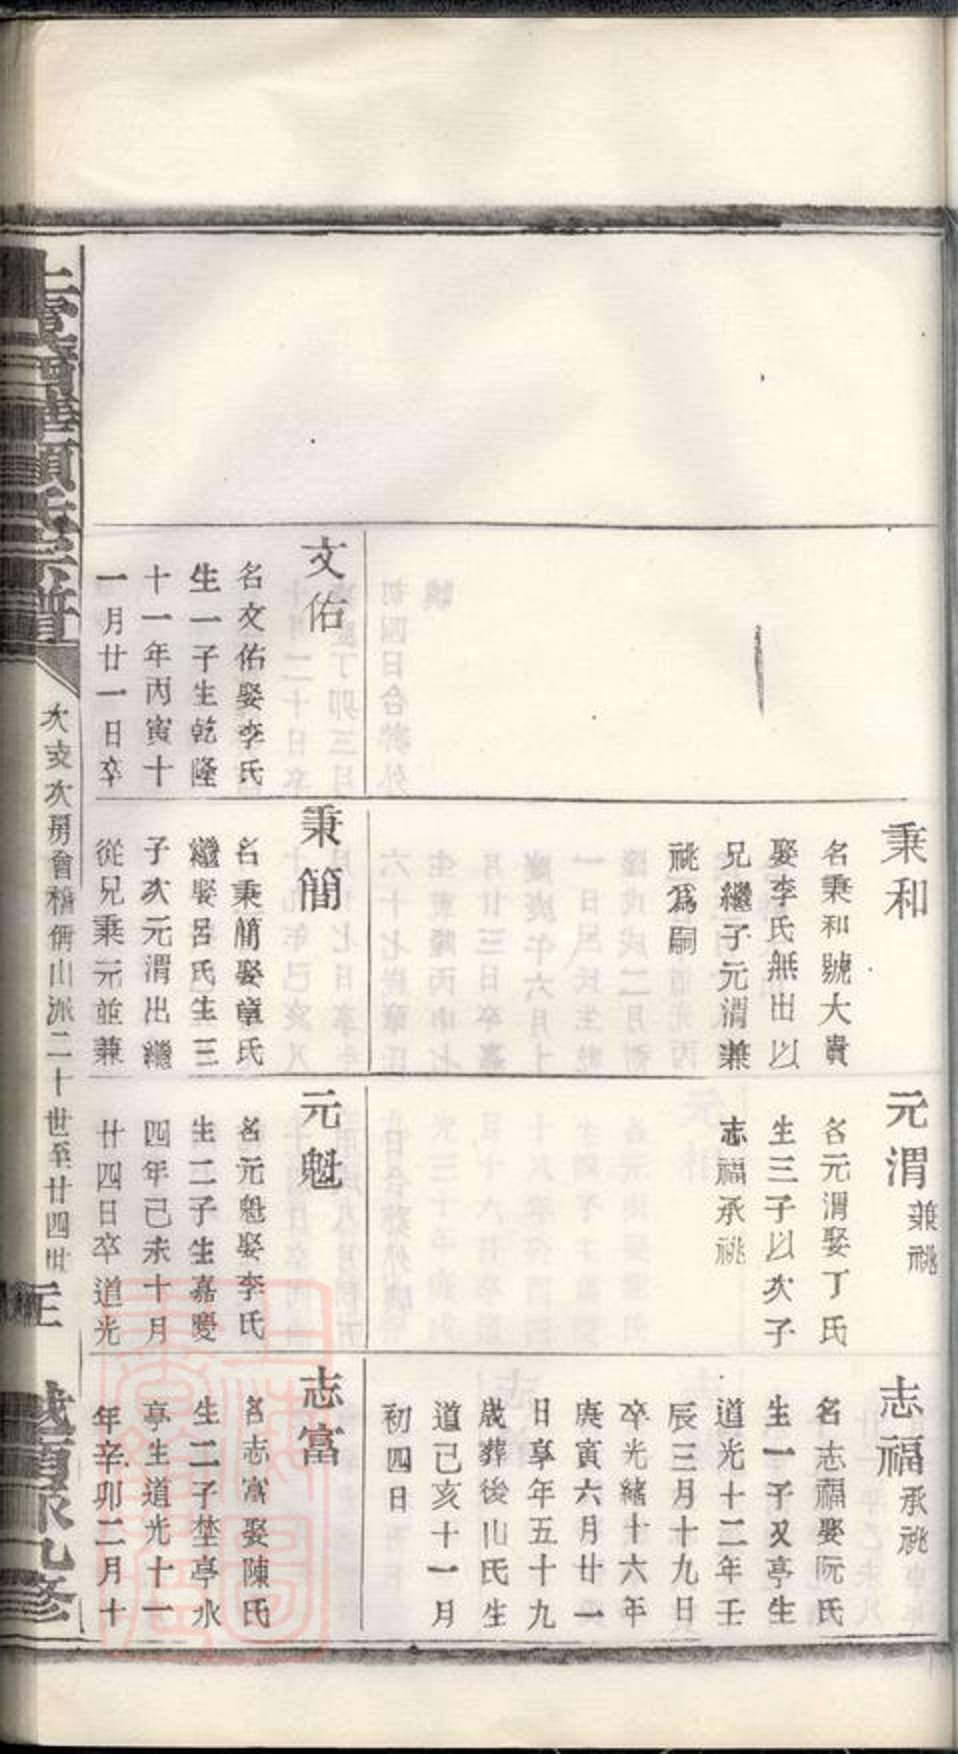 秉和
名秉和號大貴
娶李氏無出以
兄繼子元渭兼
祧爲嗣
元渭兼祧
名元渭娶丁氏
生三子以次子
志福承祧
志福承祧
名志福娶阮氏
生一子又亭生
道光十二年壬
辰三月十九日
卒光緒十六年
庚寅六月廿一
日享年五十九
歲葬後山氏生
道己亥十一月
初四日
文佑
名文佑娶李氏
生一子生乾隆
十一年丙寅十
一月廿一日卒
秉簡
名秉簡娶章氏
繼娶呂氏生三
子次元渭出繼
從兄秉元並兼
元魁
名元魁娶李氏
生二子生嘉慶
四年己未十月
廿四日卒道光
志富
名志富娶陳氏
生二子埜亭水
亭生道光十一
年辛卯二月十
氏宗譜
次支次房會稽偁山派二十世至廿四世